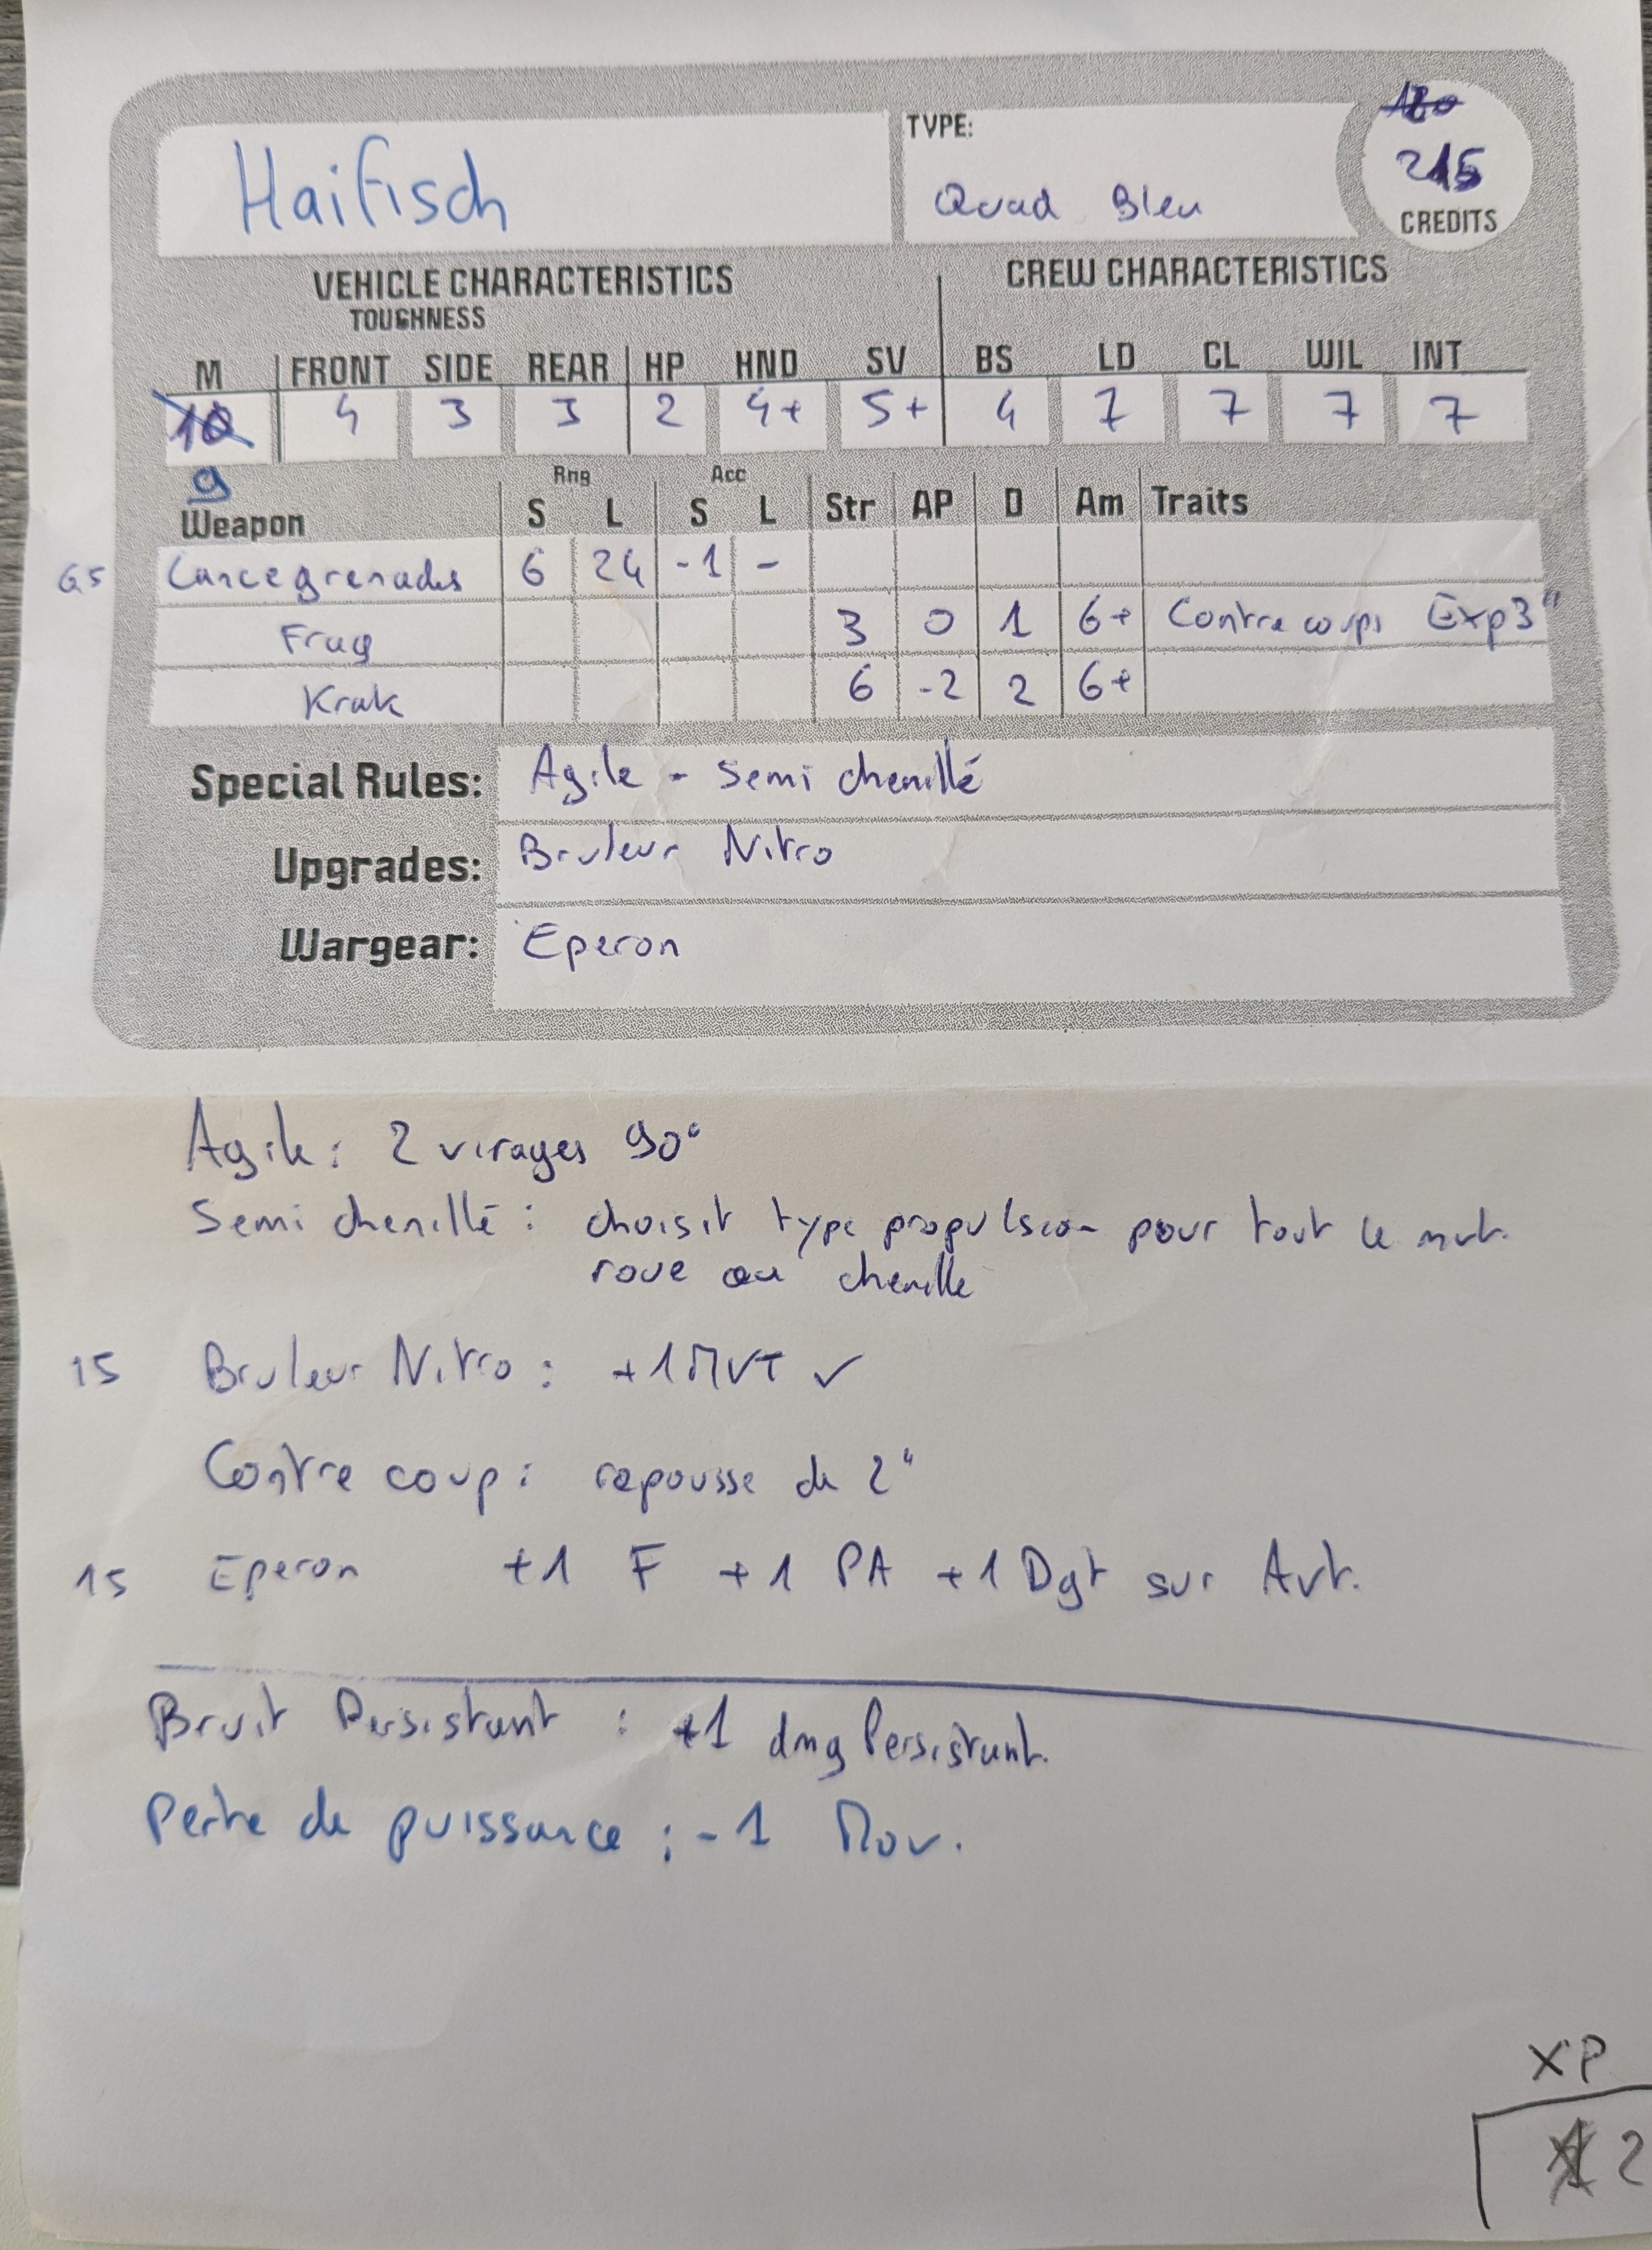 Haifisch
TYPE:
Quad Bleu
180
215
CREDITS
VEHICLE CHARACTERISTICS
CREW CHARACTERISTICS
TOUGHNESS
M FRONT SIDE REAR HP HND SV BS LD CL WIL INT
10 4 3 3 2 4+ 5+ 4 7 7 7 7
9
Rng Acc
Weapon S L S L Str AP D Am Traits
65 Lance grenades 6 24 -1 -
Frag 3 0 1 6+ Contre coups Exp3"
Krak 6 -2 2 6+
Special Rules: Agile - Semi chenillé
Upgrades: Bruleur Nitro
Wargear: Eperon
Agile: 2 virages 90°
Semi chenillé : choisit type propulsion pour tout le mvt.
roue ou chenille
15 Bruleur Nitro : +1 MVT ✓
Contre coup : repousse de 2"
15 Eperon +1 F +1 PA +1 Dgt sur Avt.
Bruit Persistant : +1 dmg Persistant.
Perte de puissance : -1 Mov.
XP
1 2